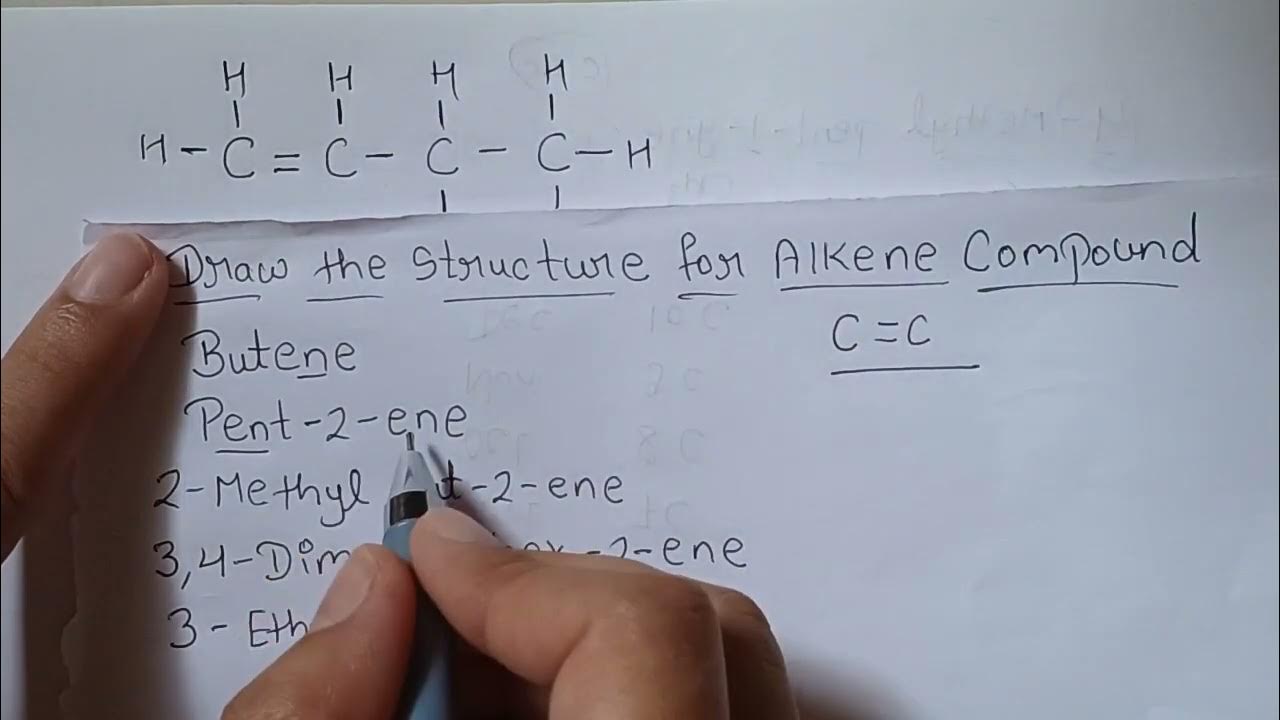 H H H H
H-C=C-C-C-H
Draw the Structure for Alkene Compound
Butene
C=C
Pent-2-ene
2-Methyl -2-ene
3,4- -2-ene
3-